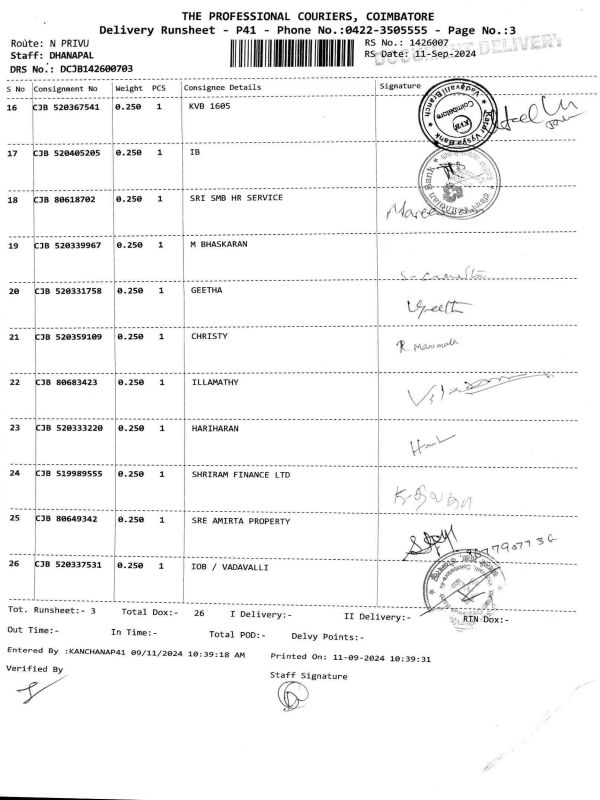 THE PROFESSIONAL COURIERS, COIMBATORE
Delivery Runsheet - P41 - Phone No.:0422-3505555 - Page No.:3
Route: N PRIVU RS No.: 1426007
DOCUMENT DELIVERY
Staff: DHANAPAL RS Date: 11-Sep-2024
DRS No.: DCJB142600703
S No Consignment No Weight PCS Consignee Details Signature
16 CJB 520367541 0.250 1 KVB 1605
Karur Vysya Bank Vadavalli Branch KVB Coimbatore
17 CJB 520405205 0.250 1 IB
Bank
18 CJB 80618702 0.250 1 SRI SMB HR SERVICE
19 CJB 520339967 0.250 1 M BHASKARAN
20 CJB 520331758 0.250 1 GEETHA
Geetha
21 CJB 520359109 0.250 1 CHRISTY
R Manimala
22 CJB 80683423 0.250 1 ILLAMATHY
23 CJB 520333220 0.250 1 HARIHARAN
24 CJB 519989555 0.250 1 SHRIRAM FINANCE LTD
25 CJB 80649342 0.250 1 SRE AMIRTA PROPERTY
26 CJB 520337531 0.250 1 IOB / VADAVALLI
Tot. Runsheet:- 3 Total Dox:- 26 I Delivery:- II Delivery:- RTN Dox:-
Out Time:- In Time:- Total POD:- Delvy Points:-
Entered By :KANCHANAP41 09/11/2024 10:39:18 AM Printed On: 11-09-2024 10:39:31
Verified By Staff Signature